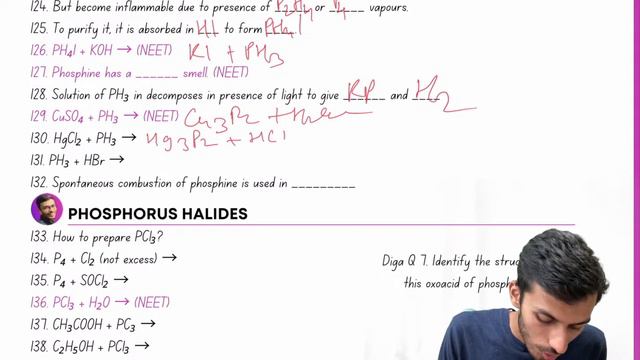 124. But become inflammable due to presence of P2H4 or P4 vapours.
125. To purify it, it is absorbed in HI to form PH4I
126. PH₄I + KOH → (NEET) KI + PH3
127. Phosphine has a ______ smell. (NEET)
128. Solution of PH₃ in decomposes in presence of light to give RP and H2
129. CuSO₄ + PH₃ → (NEET) Cu3P2 +
130. HgCl₂ + PH₃ → Hg3P2 + HCl
131. PH₃ + HBr →
132. Spontaneous combustion of phosphine is used in _________
PHOSPHORUS HALIDES
133. How to prepare PCl₃?
134. P₄ + Cl₂ (not excess) →
135. P₄ + SOCl₂ →
136. PCl₃ + H₂O → (NEET)
137. CH₃COOH + PC₃ →
138. C₂H₅OH + PCl₃ →
Diga Q 7. Identify the
this oxoacid of